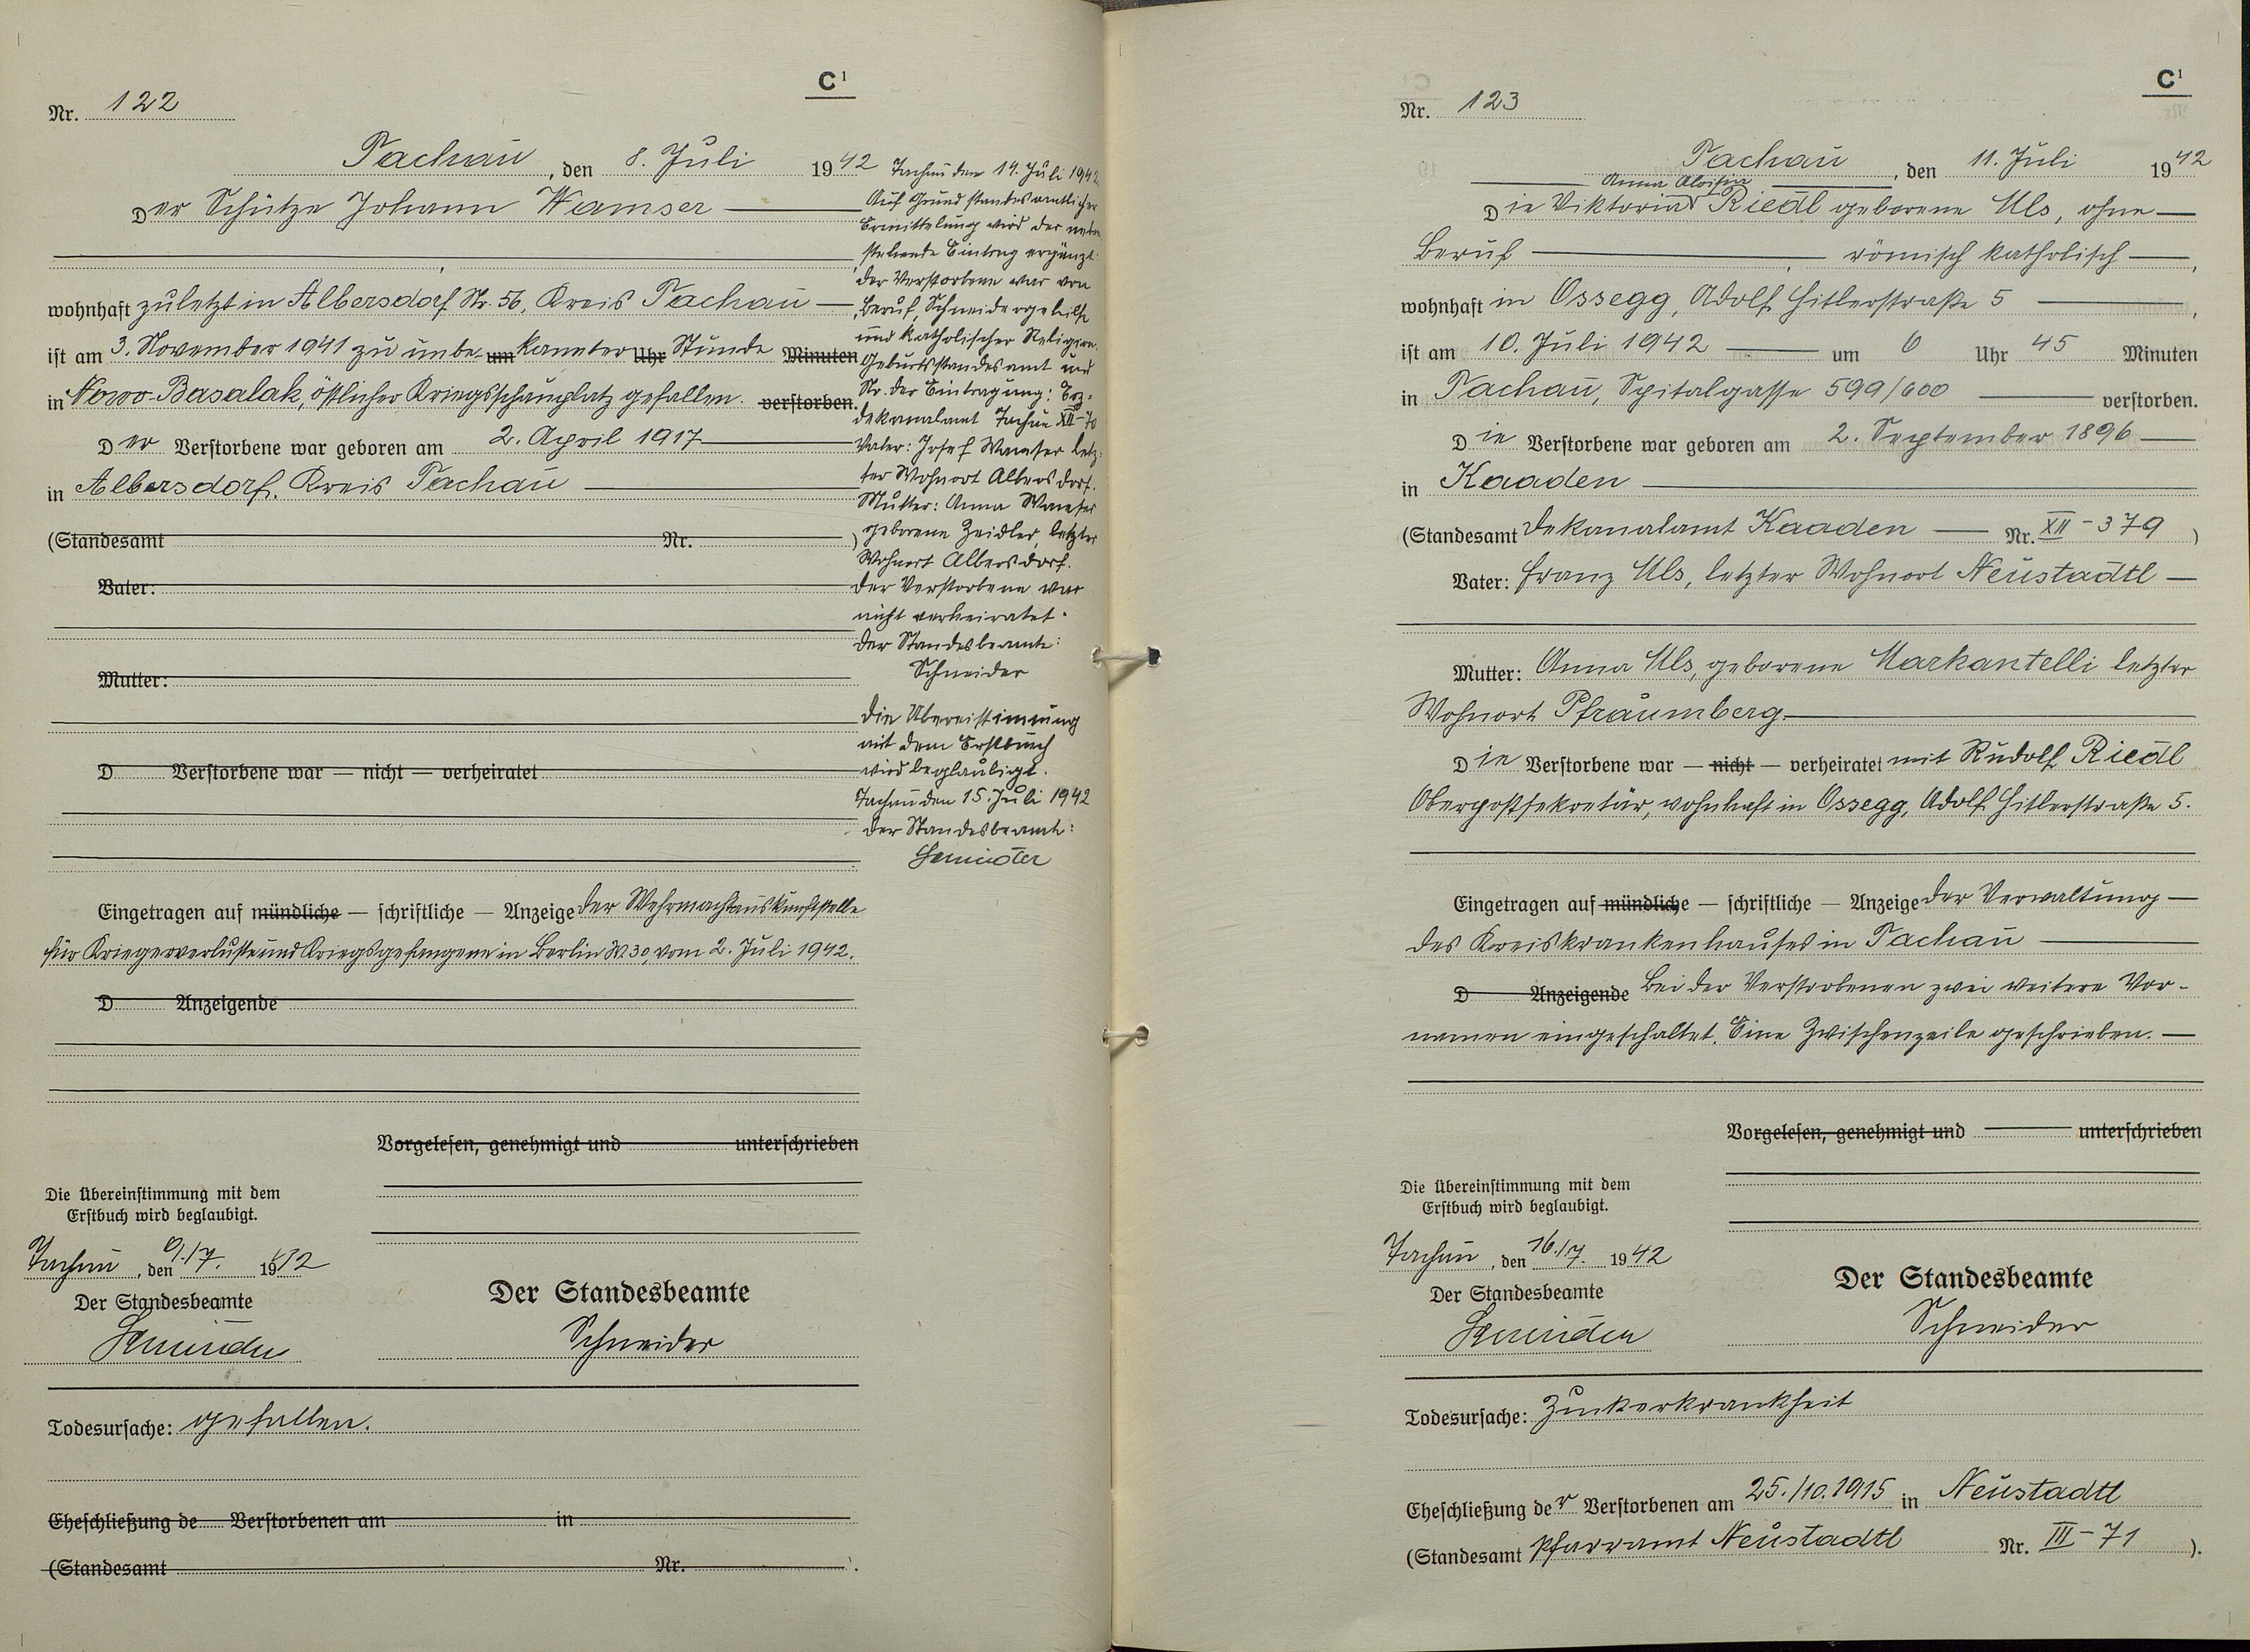 C¹
Nr. 122
Tachau, den 8. Juli 1942
Der Schütze Johann Wamser
wohnhaft zuletzt in Albersdorf Nr. 56, Kreis Tachau
ist am 3. November 1941 zu unbe- um kannter Uhr Stunde Minuten
in Nowo-Basalak, östlicher Kriegsschauplatz gefallen. verstorben.
Der Verstorbene war geboren am 2. April 1917
in Albersdorf, Kreis Tachau
(Standesamt Nr. )
Vater:
Mutter:
D Verstorbene war — nicht — verheiratet
Eingetragen auf mündliche — schriftliche — Anzeige der Wehrmachtauskunftstelle
für Kriegerverluste und Kriegsgefangene in Berlin W.30, vom 2. Juli 1942.
D Anzeigende
Vorgelesen, genehmigt und unterschrieben
Die Übereinstimmung mit dem
Erstbuch wird beglaubigt.
Tachau, den 9./7. 1942
Der Standesbeamte
Der Standesbeamte
Schneider
Todesursache: gefallen.
Eheschließung de Verstorbenen am in
(Standesamt Nr. ).
Tachau den 14. Juli 1942.
Auf Grund standesamtlicher
Ermittelung wird der neben-
stehende Eintrag ergänzt:
der Verstorbene war von
Beruf, Schneidergehilfe
und katholischer Religion.
Geburtsstandesamt und
Nr. der Eintragung: Erz-
dekanalamt Tachau XII-70
Vater: Josef Wamser letz-
ter Wohnort Albersdorf.
Mutter: Anna Wamser
geborene Zeidler, letzter
Wohnort Albersdorf.
der Verstorbene war
nicht verheiratet.
der Standesbeamte:
Schneider
die Übereistimmung
mit dem Erstbuch
wird beglaubigt.
Tachau den 15. Juli 1942
der Standesbeamte:
C¹
Nr. 123
Tachau, den 11. Juli 1942
Anna Aloisia
Die Viktoria Riedl geborene Uls, ohne
Beruf römisch katholisch,
wohnhaft in Ossegg, Adolf Hitlerstraße 5,
ist am 10. Juli 1942 um 6 Uhr 45 Minuten
in Tachau, Spitalgasse 599/600 verstorben.
Die Verstorbene war geboren am 2. September 1896
in Kaaden
(Standesamt Dekanalamt Kaaden Nr. XII - 379 )
Vater: Franz Uls, letzter Wohnort Neustadtl
Mutter: Anna Uls, geborene Markantelli letzter
Wohnort Pfraumberg.
Die Verstorbene war — nicht — verheiratet mit Rudolf Riedl
Oberpostsekretär, wohnhaft in Ossegg, Adolf Hitlerstraße 5.
Eingetragen auf mündliche — schriftliche — Anzeige der Verwaltung
des Kreiskrankenhauses in Tachau
D Anzeigende Bei der Verstorbenen zwei weitere Vor-
namen eingeschaltet. Eine Zwischenzeile geschrieben.
Vorgelesen, genehmigt und unterschrieben
Die Übereinstimmung mit dem
Erstbuch wird beglaubigt.
Tachau, den 16./7. 1942
Der Standesbeamte
Der Standesbeamte
Schneider
Todesursache: Zuckerkrankheit
Eheschließung der Verstorbenen am 25./10.1915 in Neustadtl
(Standesamt Pfarramt Neustadtl Nr. III - 71 ).